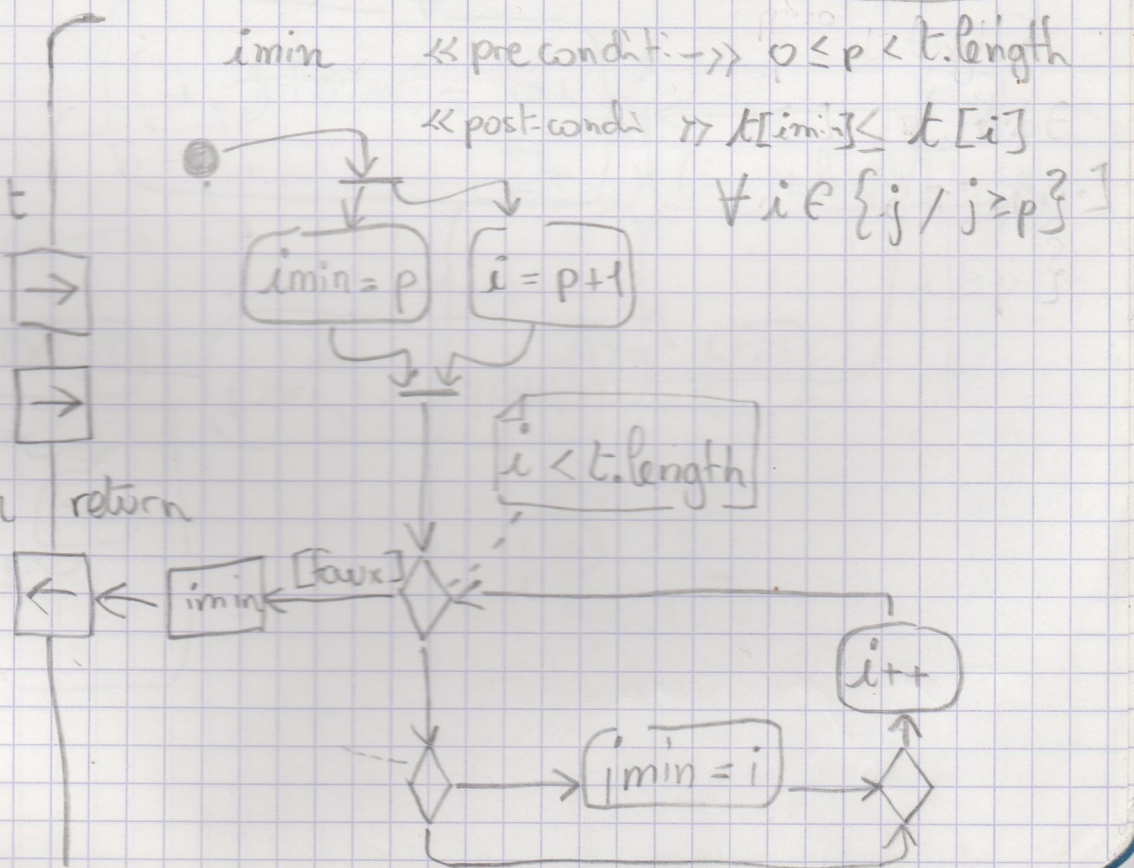 imin << pre conditi->> 0 ≤ p < t.length
<< post-condi >> t[imin] ≤ t[i]
∀ i ∈ {j / j ≥ p}
t
imin = p
i = p+1
i < t.length
return
[faux]
imin
i++
imin = i